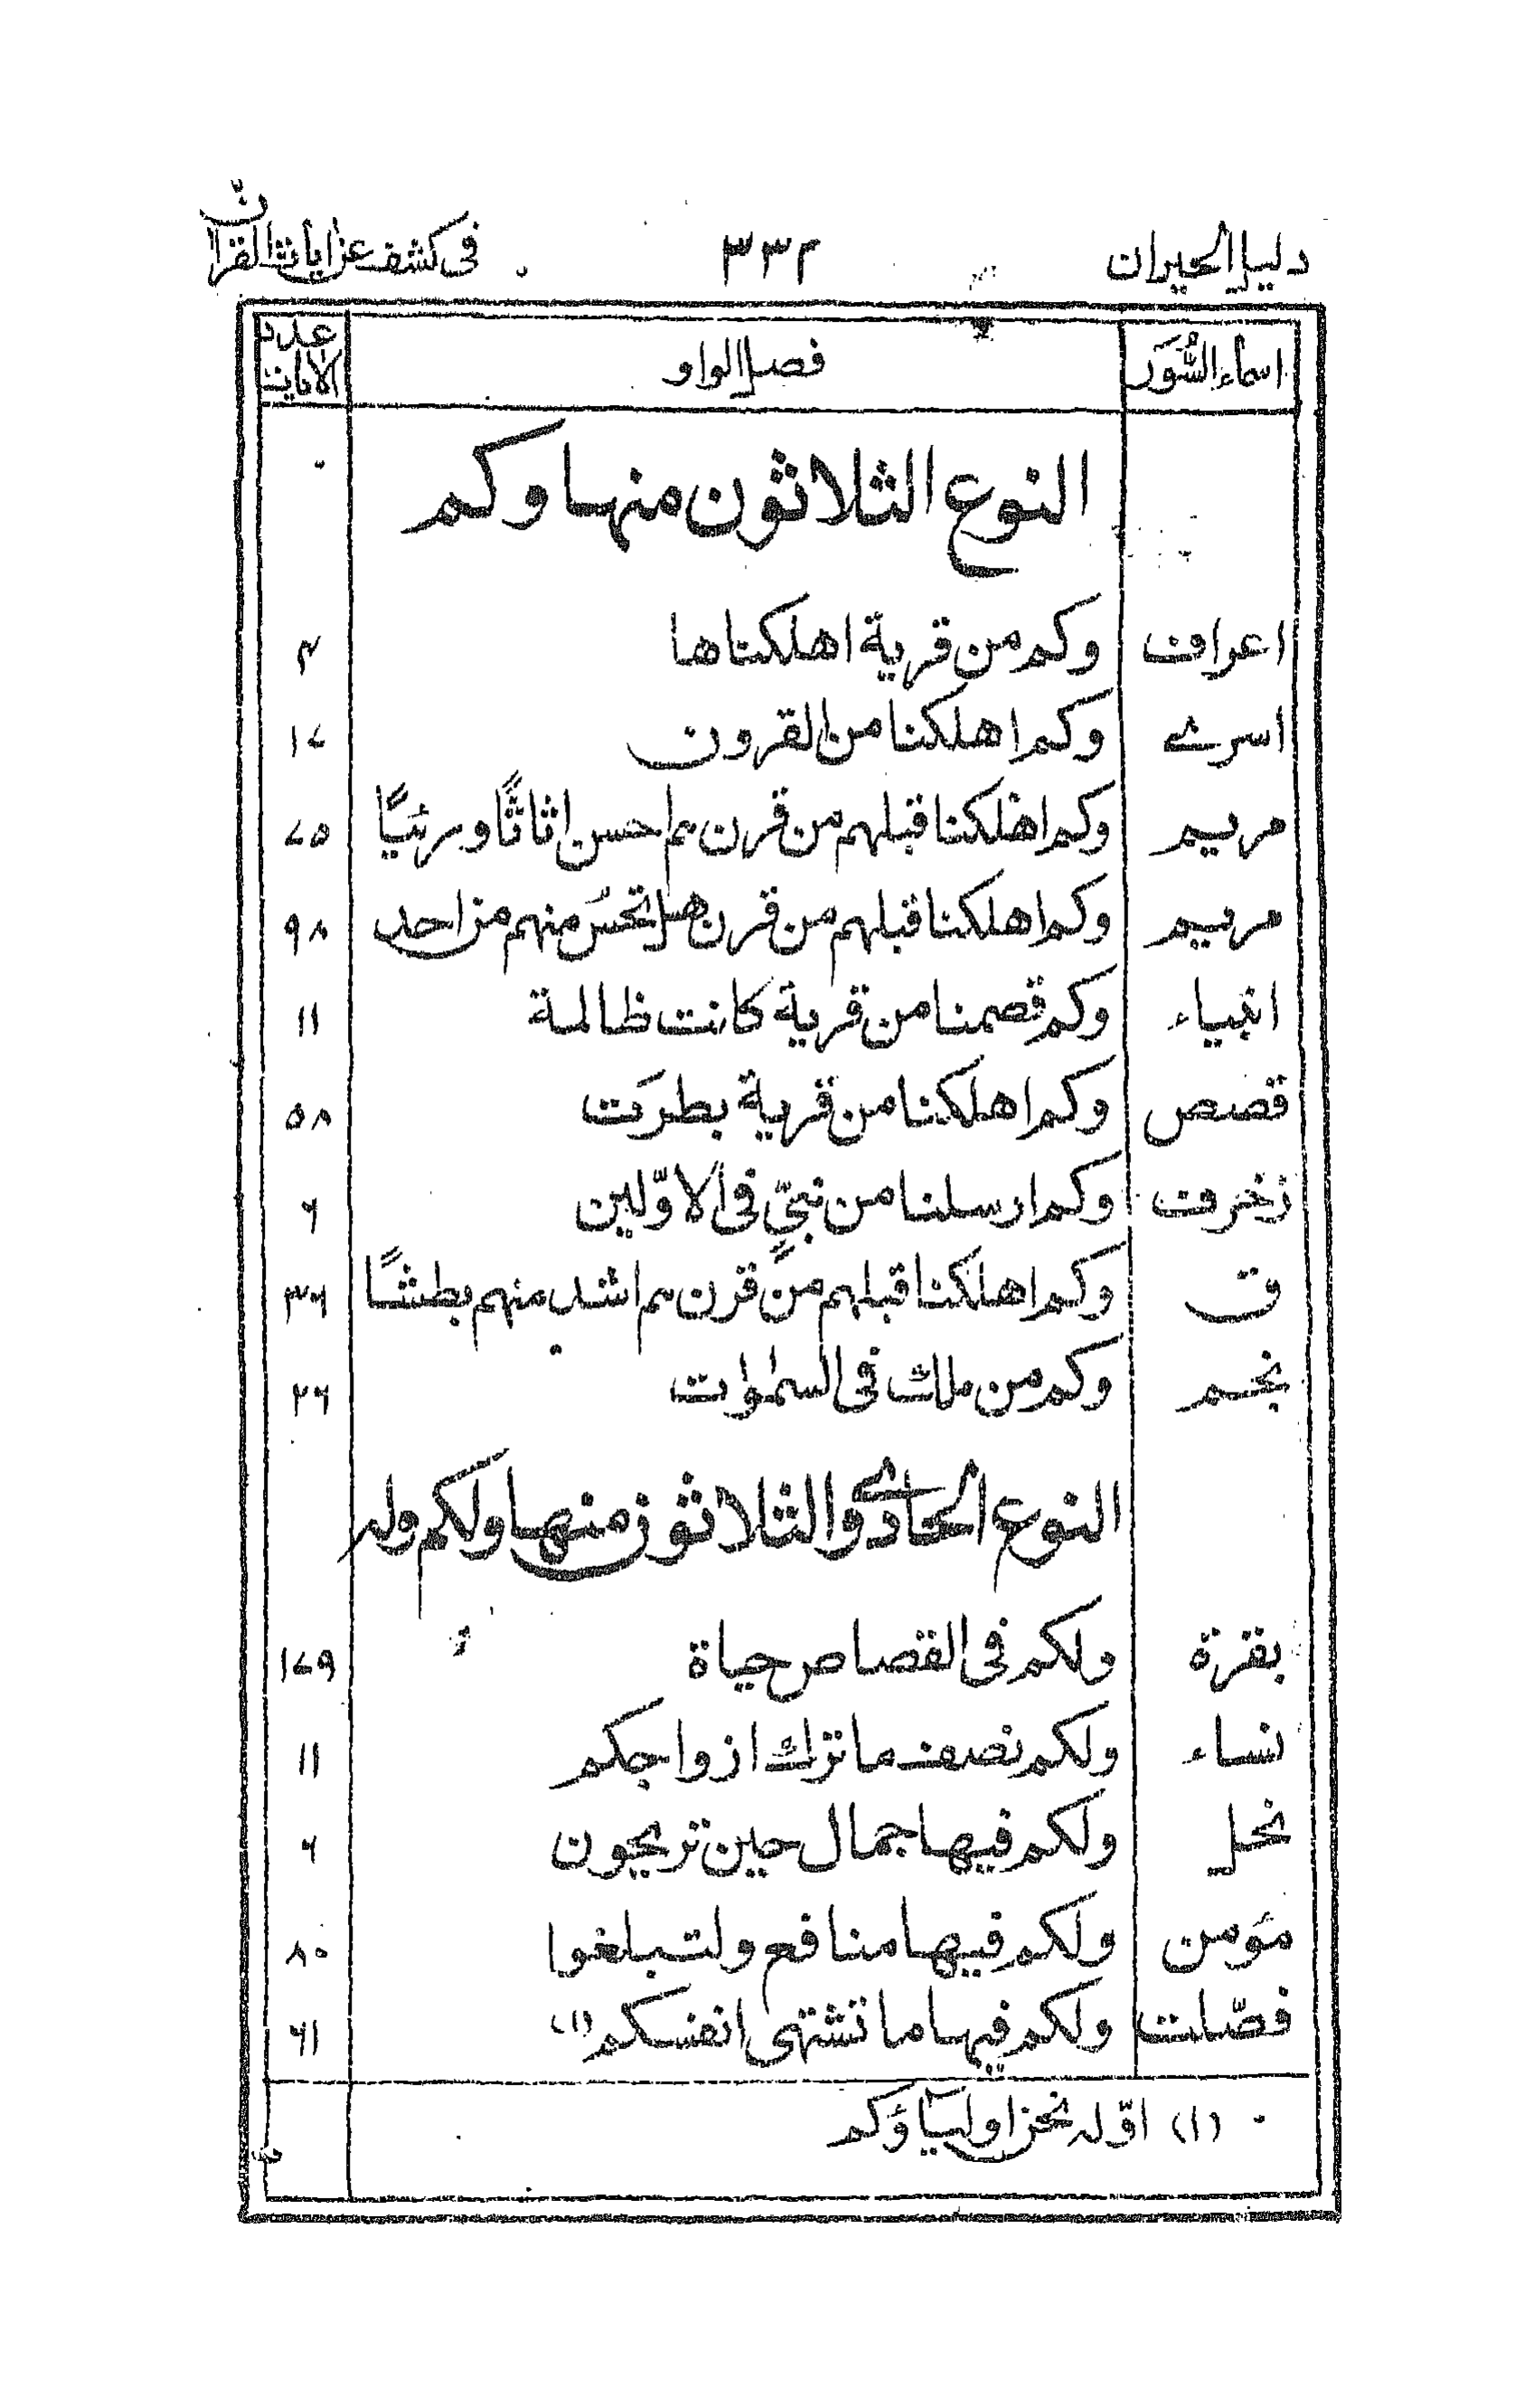 دليل الحيران ٣٣٢ فى كشف عن ايات القرآن
اسماء السُّوَر فصل الواو عدد الايات
النوع الثلاثون منها وكم
اعراف وكم من قرية اهلكناها ٣
اسرے وكم اهلكنا من القرون ١٧
مريم وكم اهلكنا قبلهم من قرن هم احسن اثاثًا ورئيًا ٧٥
مريم وكم اهلكنا قبلهم من قرن هل تحسّ منهم من احد ٩٨
انبياء وكم قصمنا من قرية كانت ظالمة ١١
قصص وكم اهلكنا من قرية بطرَت ٥٨
زخرف وكم ارسلنا من نبىٍّ فى الاوّلين ٦
ق وكم اهلكنا قبلهم من قرن هم اشد منهم بطشًا ٣٦
نجم وكم من ملك فى السمٰوات ٢٦
النوع الحادى والثلاثون منها ولكم وله
بقرة ولكم فى القصاص حياة ١٧٩
نساء ولكم نصف ما ترك ازواجكم ١١
نحل ولكم فيها جمال حين تريحون ٦
مؤمن ولكم فيها منافع ولتبلغوا ٨٠
فصّلت ولكم فيها ما تشتهى انفسكم (١) ٦١
(١) اوّله نحن اولياؤكم